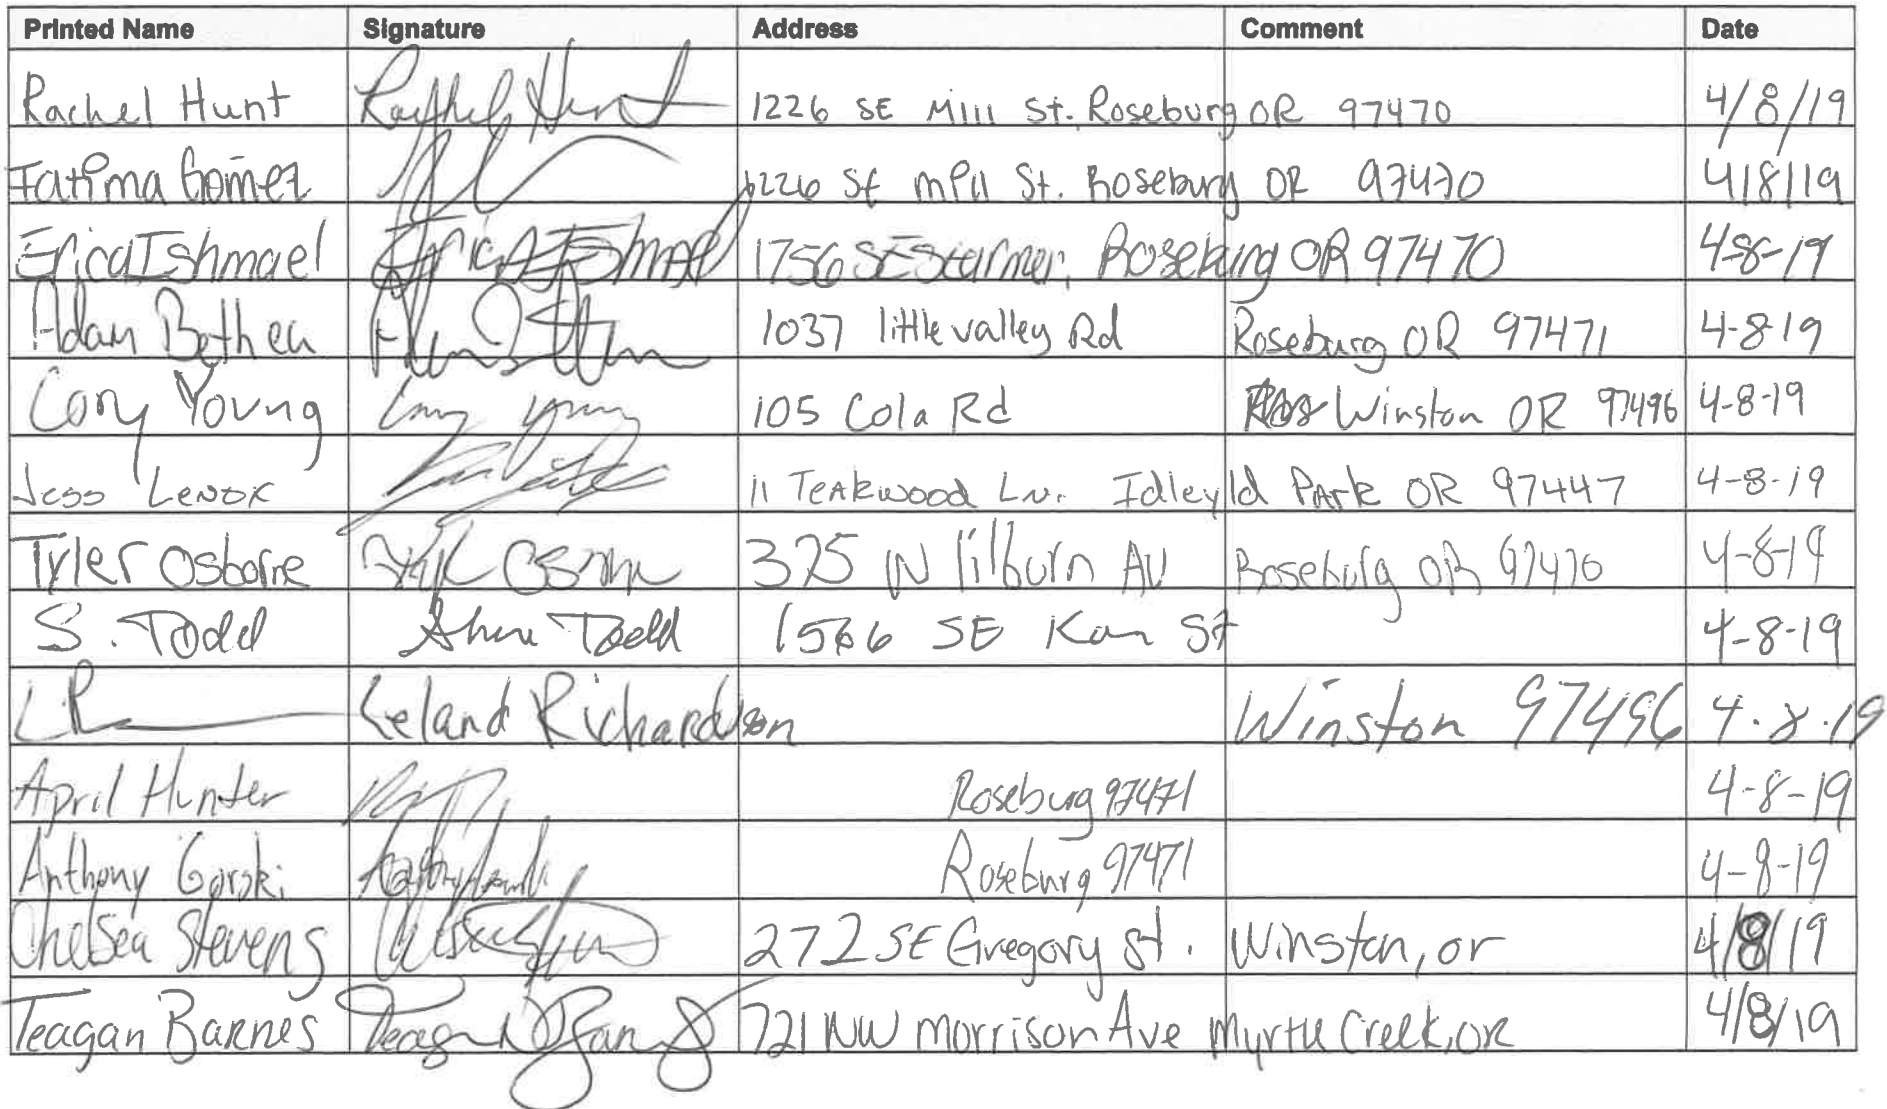 Printed Name Signature Address Comment Date
Rachel Hunt Rachel Hunt 1226 SE Mill St. Roseburg OR 97470 4/8/19
Fatima Gomez 1226 SE Mill St. Roseburg OR 97470 4/8/19
Erica Ishmael Erica Ishmael 1756 SE Starmer, Roseburg OR 97470 4-8-19
Adam Bethea 1037 little valley Rd Roseburg OR 97471 4-8-19
Cory Young Cory Young 105 Cola Rd Winston OR 97496 4-8-19
Jess Lenox 11 Teakwood Ln. Idleyld Park OR 97447 4-8-19
Tyler Osborne Osborne 325 W lilburn AV Roseburg OR 97470 4-8-19
S. Todd Todd 1566 SE Kan St 4-8-19
LR Leland Richardson Winston 97496 4.8.19
April Hunter Roseburg 97471 4-8-19
Anthony Gorski Roseburg 97471 4-8-19
Chelsea Stevens 272 SE Gregory St. Winston, or 4/8/19
Teagan Barnes Teagan Barnes 721 NW Morrison Ave Myrtle Creek, OR 4/8/19